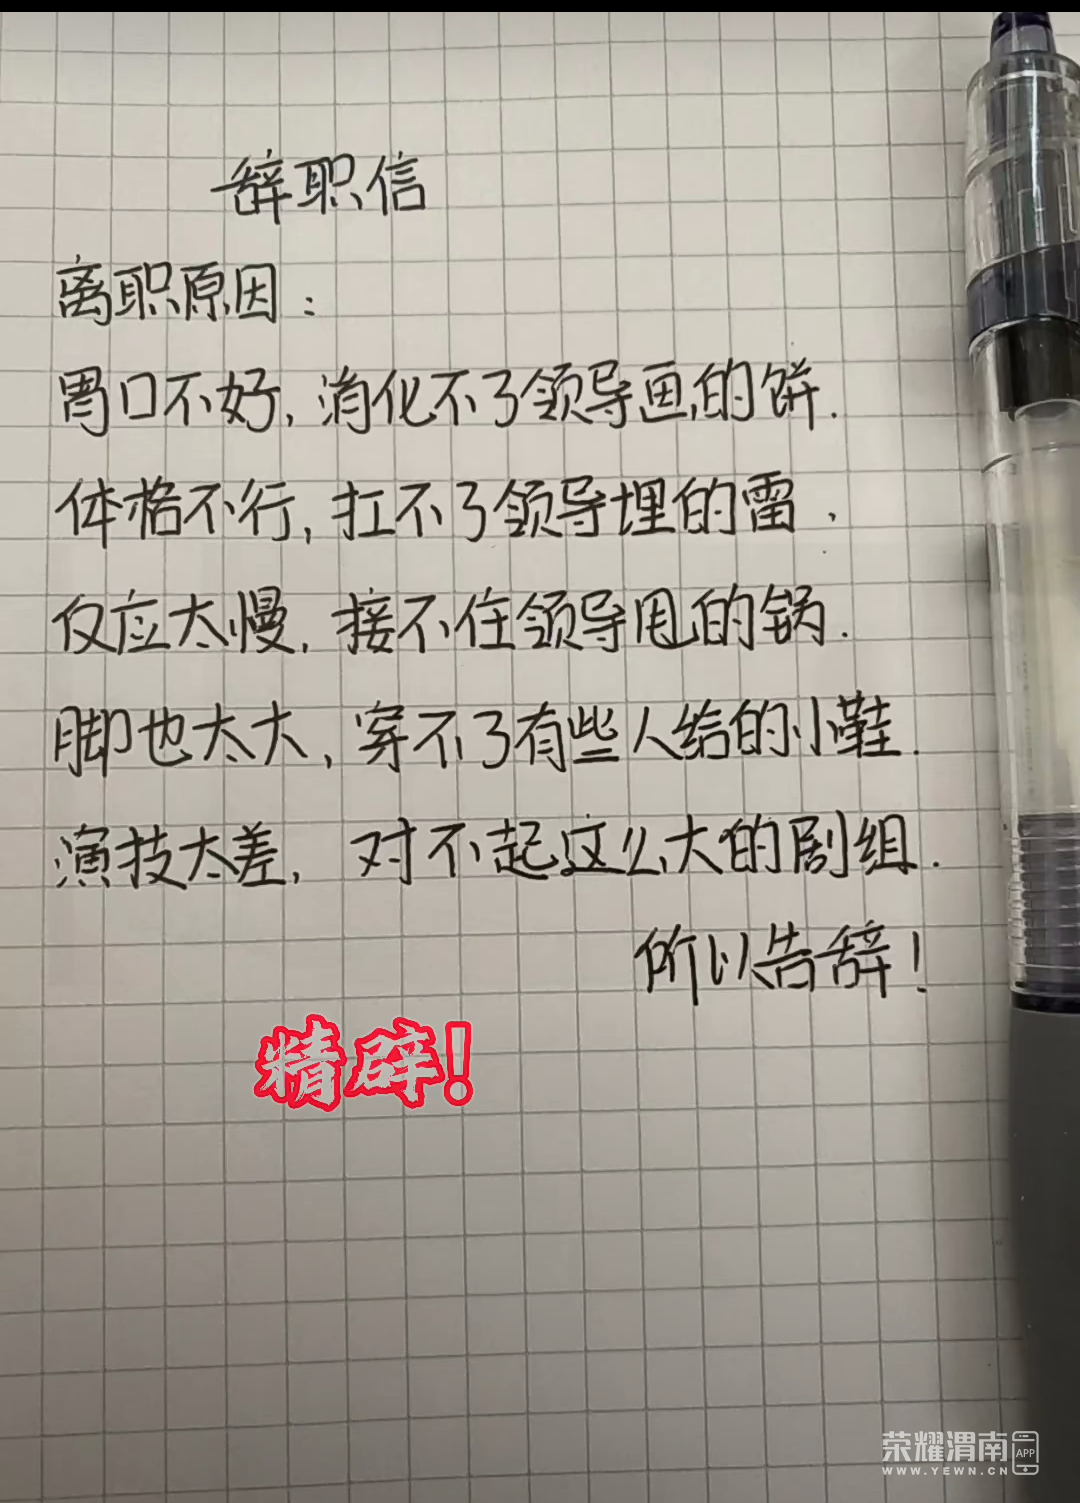 辞职信
离职原因：
胃口不好，消化不了领导画的饼.
体格不行，扛不了领导埋的雷.
仅应太慢，接不住领导甩的锅.
脚也太大，穿不了有些人给的小鞋.
演技太差，对不起这么大的剧组.
所以告辞！
精辟！
荣耀渭南APP
WWW.YEWN.CN